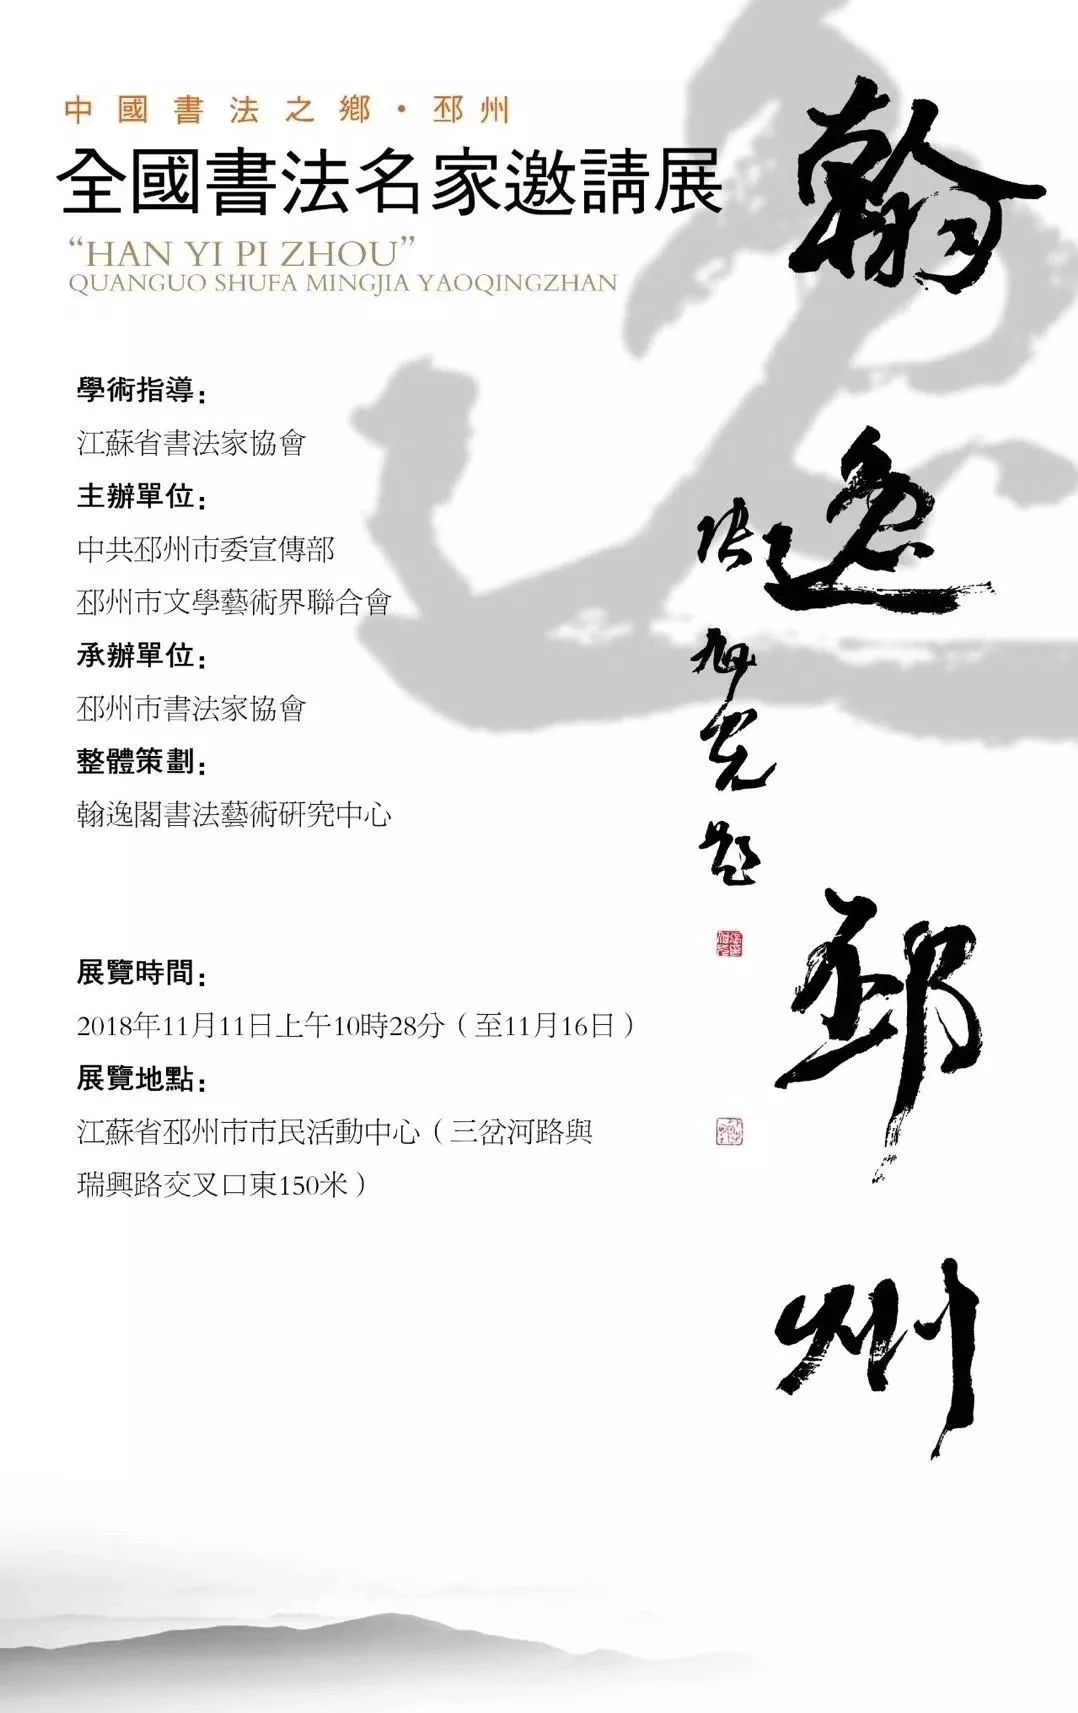 中國書法之鄉·邳州
全國書法名家邀請展
“HAN YI PI ZHOU”
QUANGUO SHUFA MINGJIA YAOQINGZHAN
學術指導：
江蘇省書法家協會
主辦單位：
中共邳州市委宣傳部
邳州市文學藝術界聯合會
承辦單位：
邳州市書法家協會
整體策劃：
翰逸閣書法藝術研究中心
展覽時間：
2018年11月11日上午10時28分（至11月16日）
展覽地點：
江蘇省邳州市市民活動中心（三岔河路與
瑞興路交叉口東150米）
翰逸邳州
張旭光題